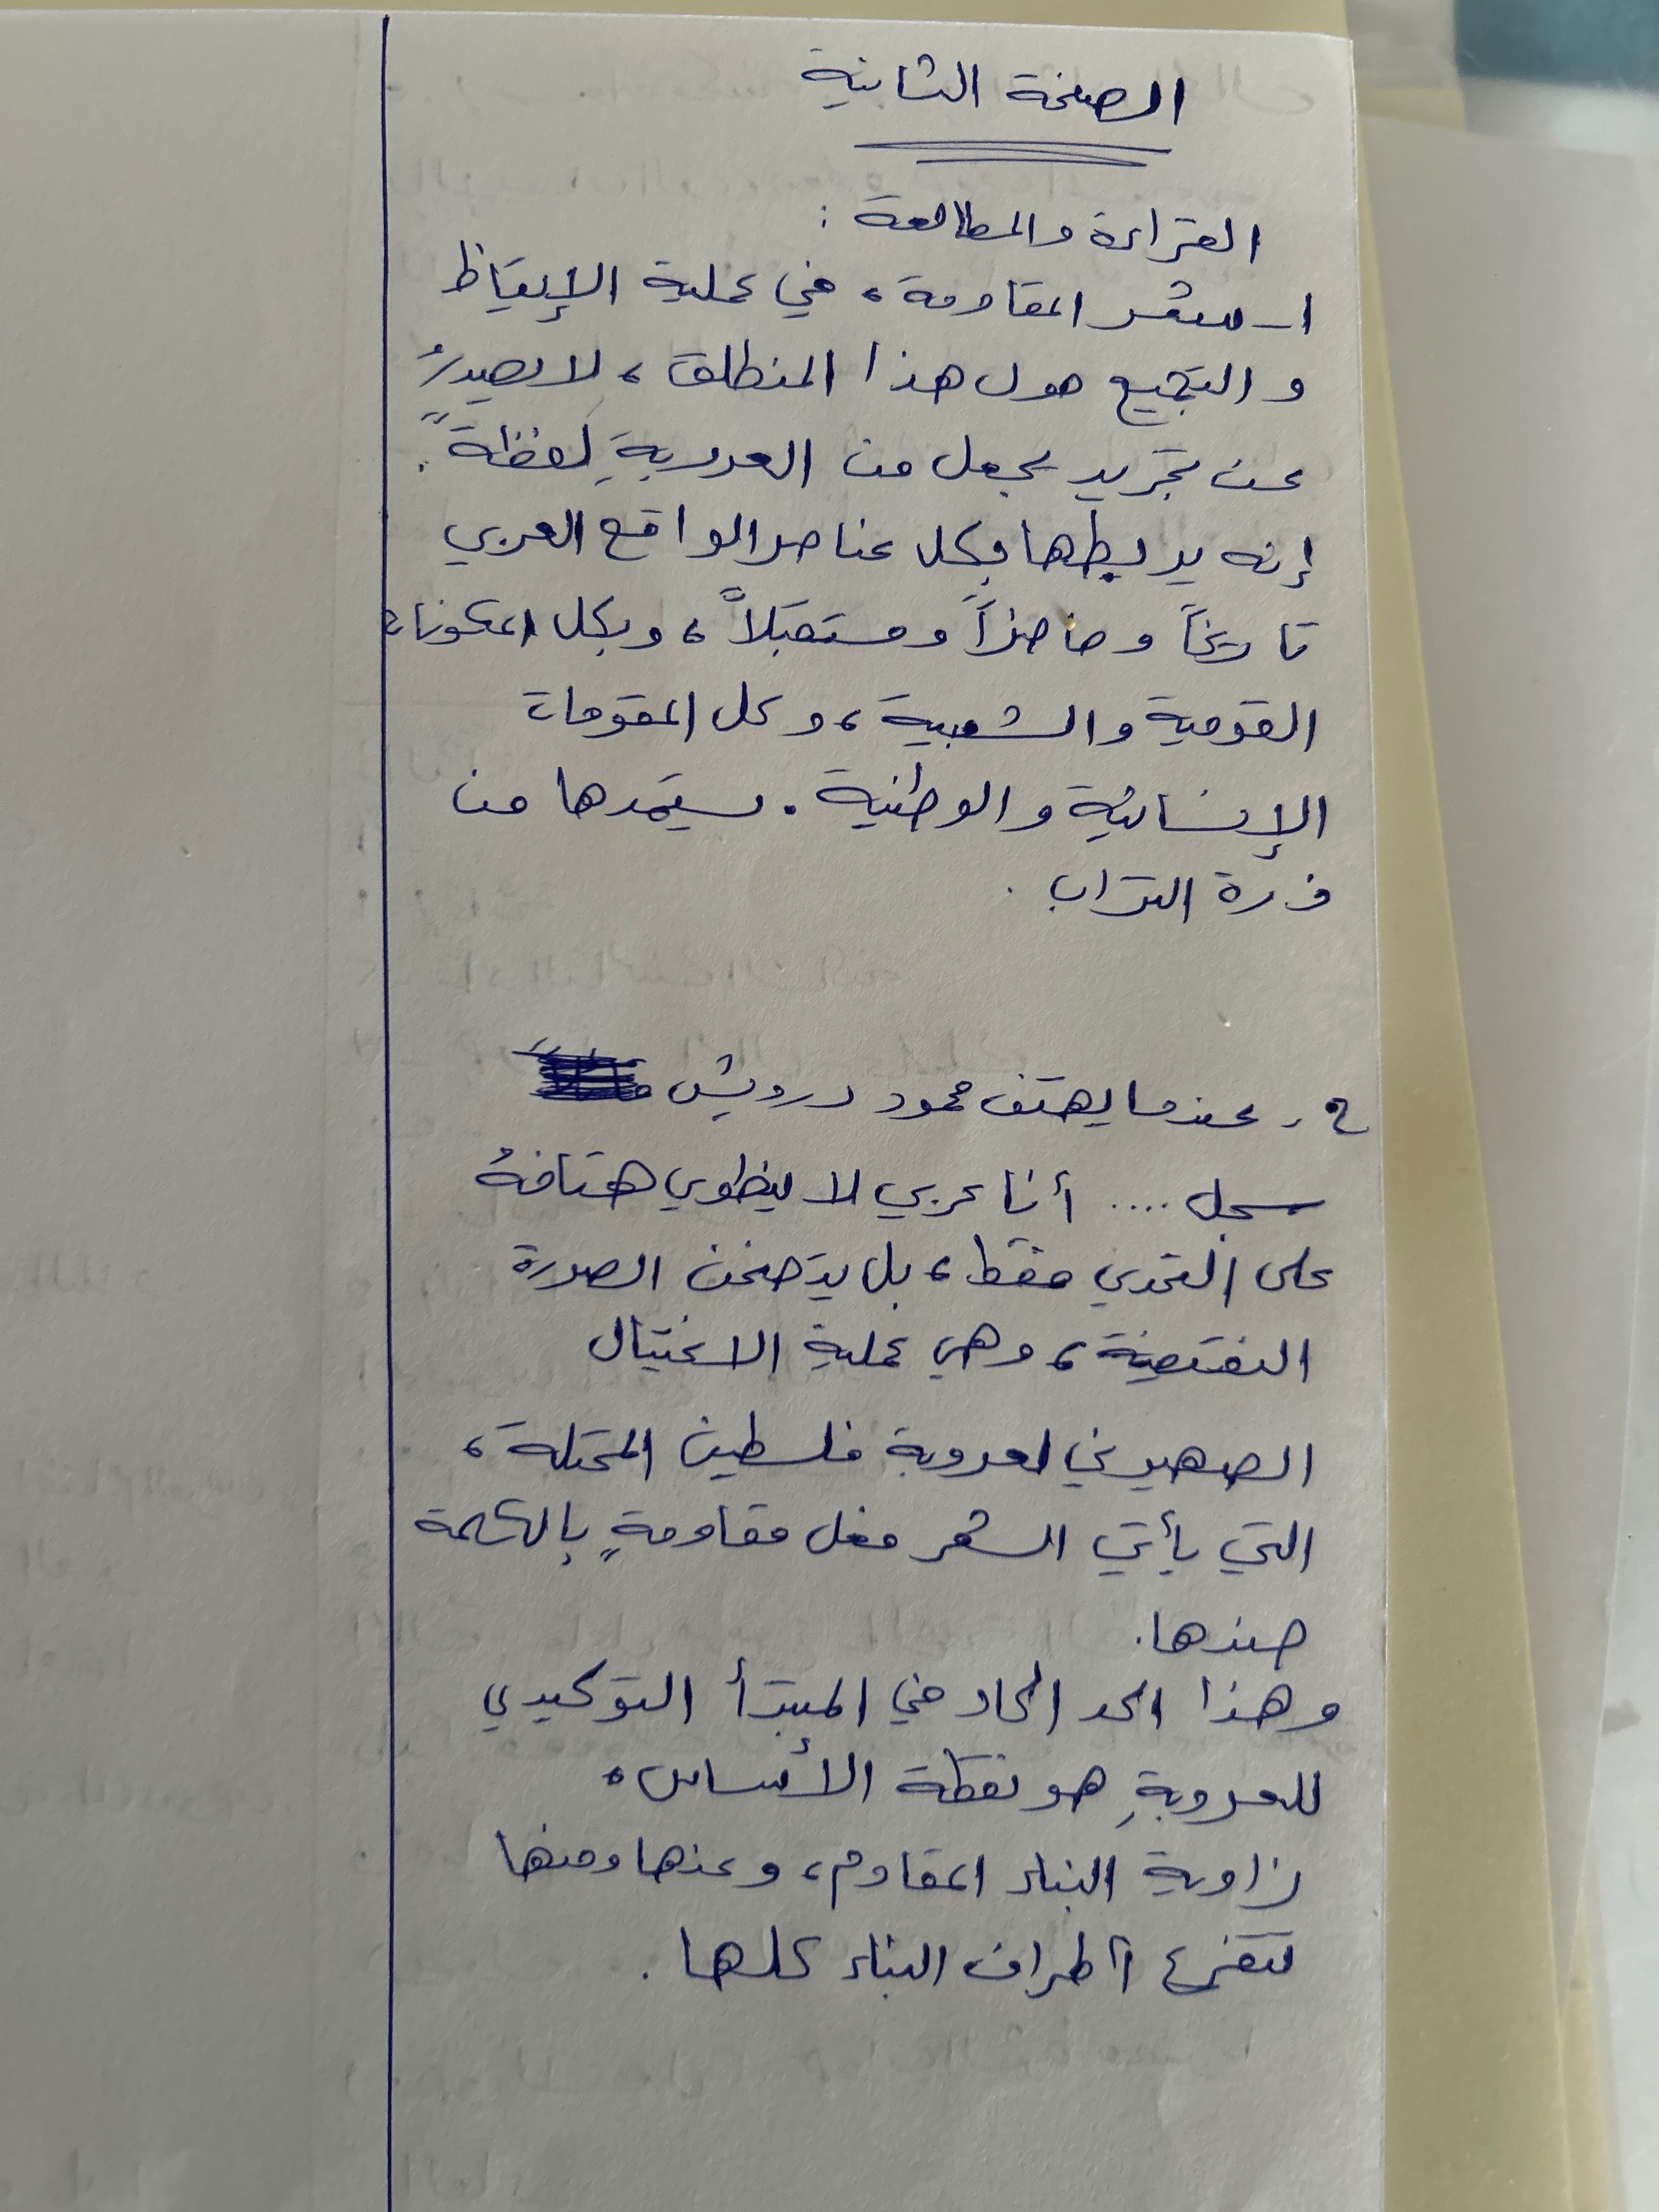 الصفحة الثانية
القراءة والمطالعة :
١- شعر المقاومة، في عملية الإيقاظ
و التجميع حول هذا المنطلق، لا يصدرُ
عن تجريد يجعل من العروبةِ لفظةً.
إنه يربطها بكل عناصر الواقع العربي
تاريخاً وحاضراً ومستقبلاً، وبكل المكونات
القومية والشعبية، وكل المقومات
الإنسانية والوطنية. يستمدها من
ذرة التراب.
٢- عندما يهتف محمود درويش
سجل .... أنا عربي لا ينطوي هتافهُ
على التحدي فقط، بل يتضمن الصورة
النقيضة، وهي عملية الاغتيال
الصهيوني لعروبة فلسطين المحتلة،
التي يأتي الشعر فعل مقاومةٍ بالكلمة
ضدها.
وهذا الحد الحاد في المبتدأ التوكيدي
للعروبةِ هو نقطة الأساس،
زاوية البناء المقاوم، وعنها ومنها
تتفرع أطراف البناء كلها.